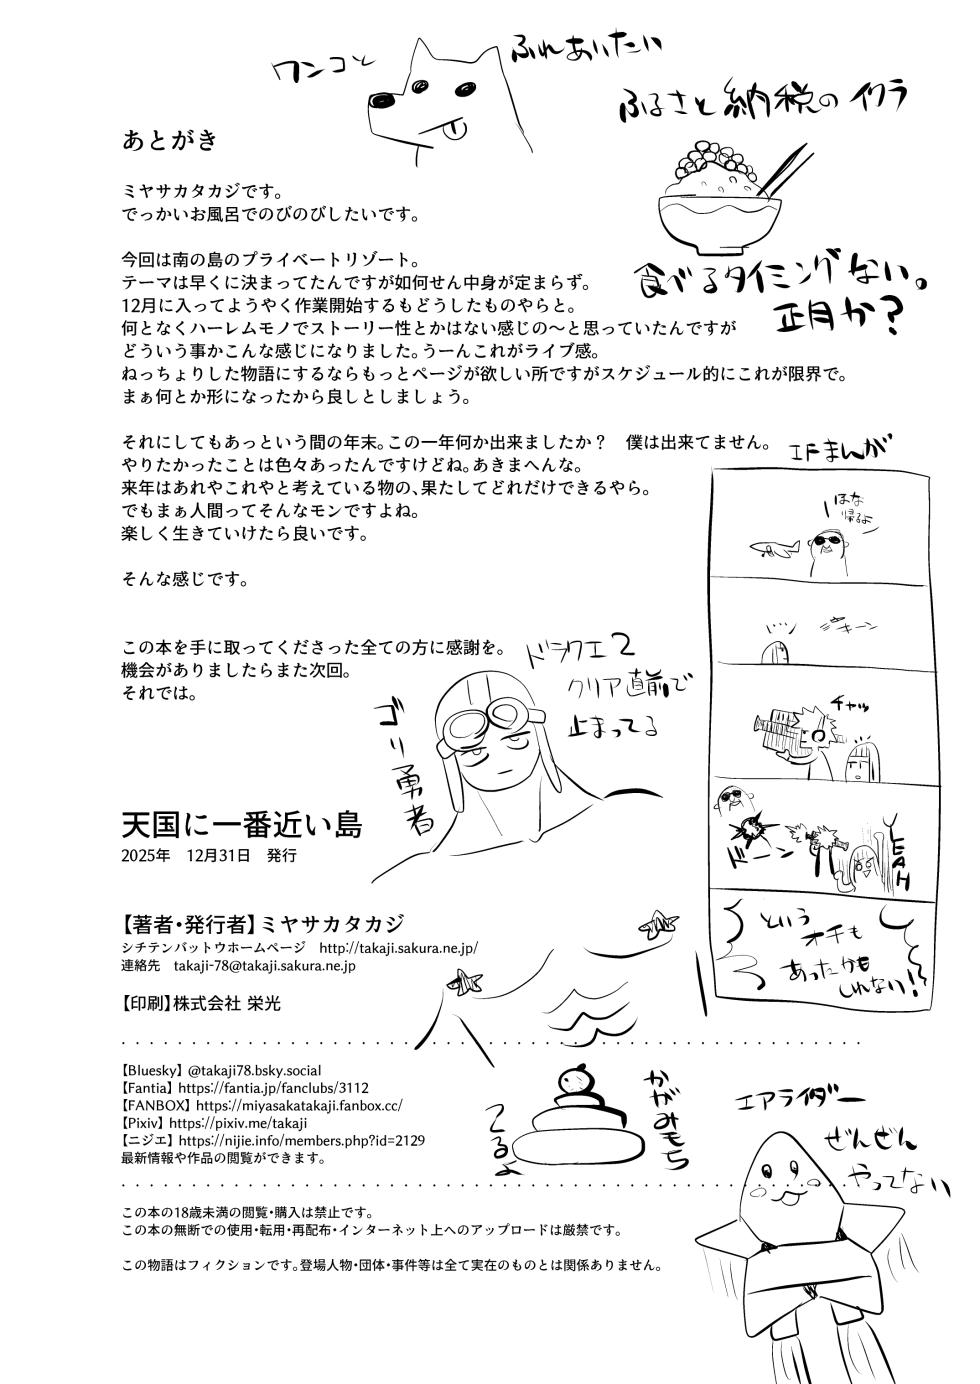 ワンコと
ふれあいたい
ふるさと納税のイクラ
食べるタイミングない。
正月か?
あとがき
ミヤサカタカジです。
でっかいお風呂でのびのびしたいです。
今回は南の島のプライベートリゾート。
テーマは早くに決まってたんですが如何せん中身が定まらず。
12月に入ってようやく作業開始するもどうしたものやらと。
何となくハーレムモノでストーリー性とかはない感じの〜と思っていたんですが
どういう事かこんな感じになりました。うーんこれがライブ感。
ねっちょりした物語にするならもっとページが欲しい所ですがスケジュール的にこれが限界で。
まぁ何とか形になったから良しとしましょう。
それにしてもあっという間の年末。この一年何か出来ましたか？　僕は出来てません。
やりたかったことは色々あったんですけどね。あきまへんな。
来年はあれやこれやと考えている物の、果たしてどれだけできるやら。
でもまぁ人間ってそんなモンですよね。
楽しく生きていけたら良いです。
そんな感じです。
この本を手に取ってくださった全ての方に感謝を。
機会がありましたらまた次回。
それでは。
IFまんが
ほな
帰るよ
キーン
チャッ
ドーン
YEAH
という
オチも
あったかも
しれない!
ドラクエ2
クリア直前で
止まってる
ゴリ勇者
天国に一番近い島
2025年　12月31日　発行
【著者・発行者】ミヤサカタカジ
シチテンバットウホームページ　http://takaji.sakura.ne.jp/
連絡先　takaji-78@takaji.sakura.ne.jp
【印刷】株式会社 栄光
【Bluesky】@takaji78.bsky.social
【Fantia】https://fantia.jp/fanclubs/3112
【FANBOX】https://miyasakatakaji.fanbox.cc/
【Pixiv】https://pixiv.me/takaji
【ニジエ】https://nijie.info/members.php?id=2129
最新情報や作品の閲覧ができます。
かがみもち
てるよ
エアライダー
ぜんぜん
やってない
この本の18歳未満の閲覧・購入は禁止です。
この本の無断での使用・転用・再配布・インターネット上へのアップロードは厳禁です。
この物語はフィクションです。登場人物・団体・事件等は全て実在のものとは関係ありません。